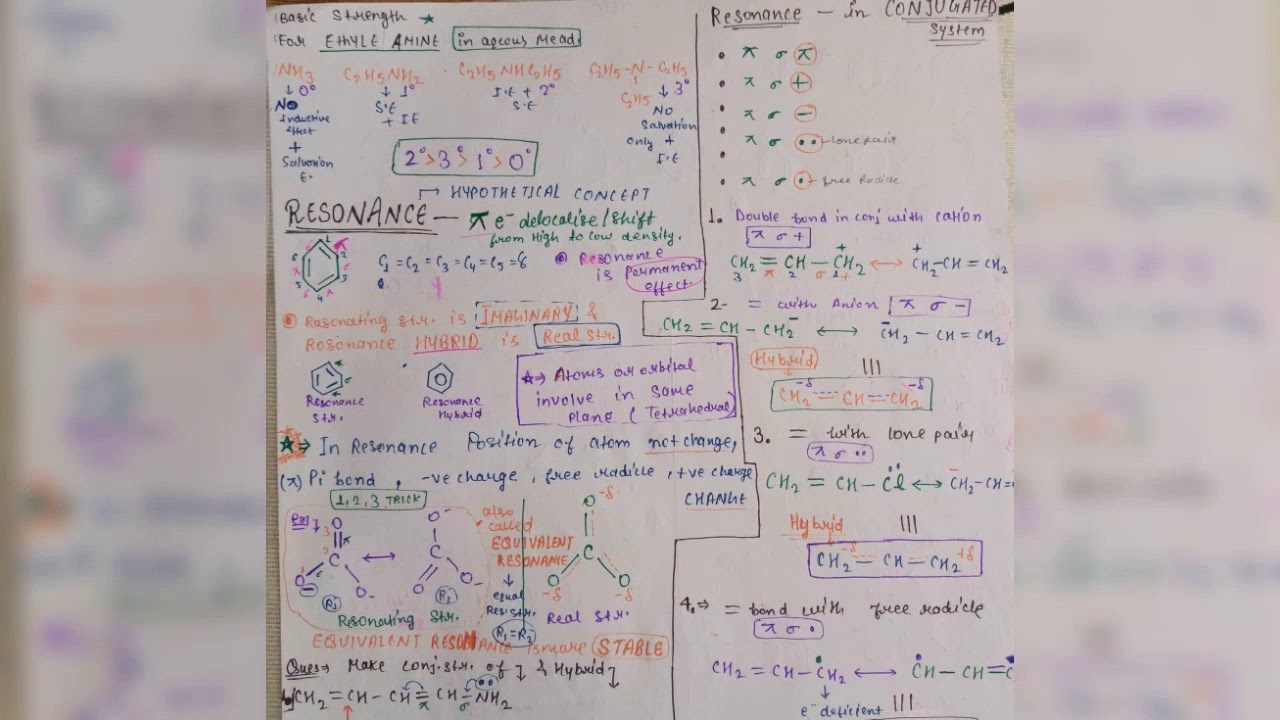 Basic Strength ★
For ETHYLE AMINE in aqeous Mead.
NH3 C2H5NH2 C2H5 NH C2H5 C2H5-N-C2H5
↓0° ↓1° I.E + 2° C2H5 ↓3°
NO S.E S.E NO
Inductive + IE Salvation
effect only +
+ I.E
Salvanion
E.
2°>3°>1°>0°
HYPOTHETICAL CONCEPT
RESONANCE — π e⁻ delocalise/shift
from High to low density.
1
6 2
5 3
4
C1=C2=C3=C4=C5=6
Resonance
is Permanent
effect.
Rasonating str. is IMAGINARY &
Rosonance HYBRID is Real Str.
Resonance Resonance
Str. Hybrid
☆⇒ Atoms or orbital
involve in same
plane ( Tetrahedral)
★⇒ In Resonance Position of atom not change,
(π) Pi bond, -ve charge, free radicle, +ve charge
CHANGE
1,2,3 TRICK
O O⁻ O-δ
C ↔ C C
O O⁻ O O⁻ O-δ O-δ
R1 R2
also
called
EQUIVALENT
RESONANCE
↓
equal
Res. str.
R1=R2
Resonating Str. Real Str.
EQUIVALENT RESONANCE is more STABLE
Ques⇒ Make conj. str. of ↓ & Hybrid↓
CH2=CH-CH=CH-NH2
Resonance — in CONJUGATED
System
• π σ π
• π σ +
• π σ −
• π σ •• lone pair
• π σ • free Radicle
1. Double bond in conj with cation
π σ +
CH2=CH-CH2+ ↔ +CH2-CH=CH2
3 π 2 σ 1 +
2- = with Anion π σ −
CH2=CH-CH2⁻ ↔ ⁻CH2-CH=CH2
Hybrid |||
CH2-δ CH CH2-δ
3. = with lone pair
π σ ••
CH2=CH-Cl ↔ CH2-CH=
Hybrid |||
CH2-δ CH CH2+δ
4.⇒ = bond with free radicle
π σ •
CH2=CH-CH2 ↔ CH-CH=C
↓
e⁻ deficient |||